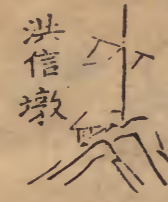 洪信墩